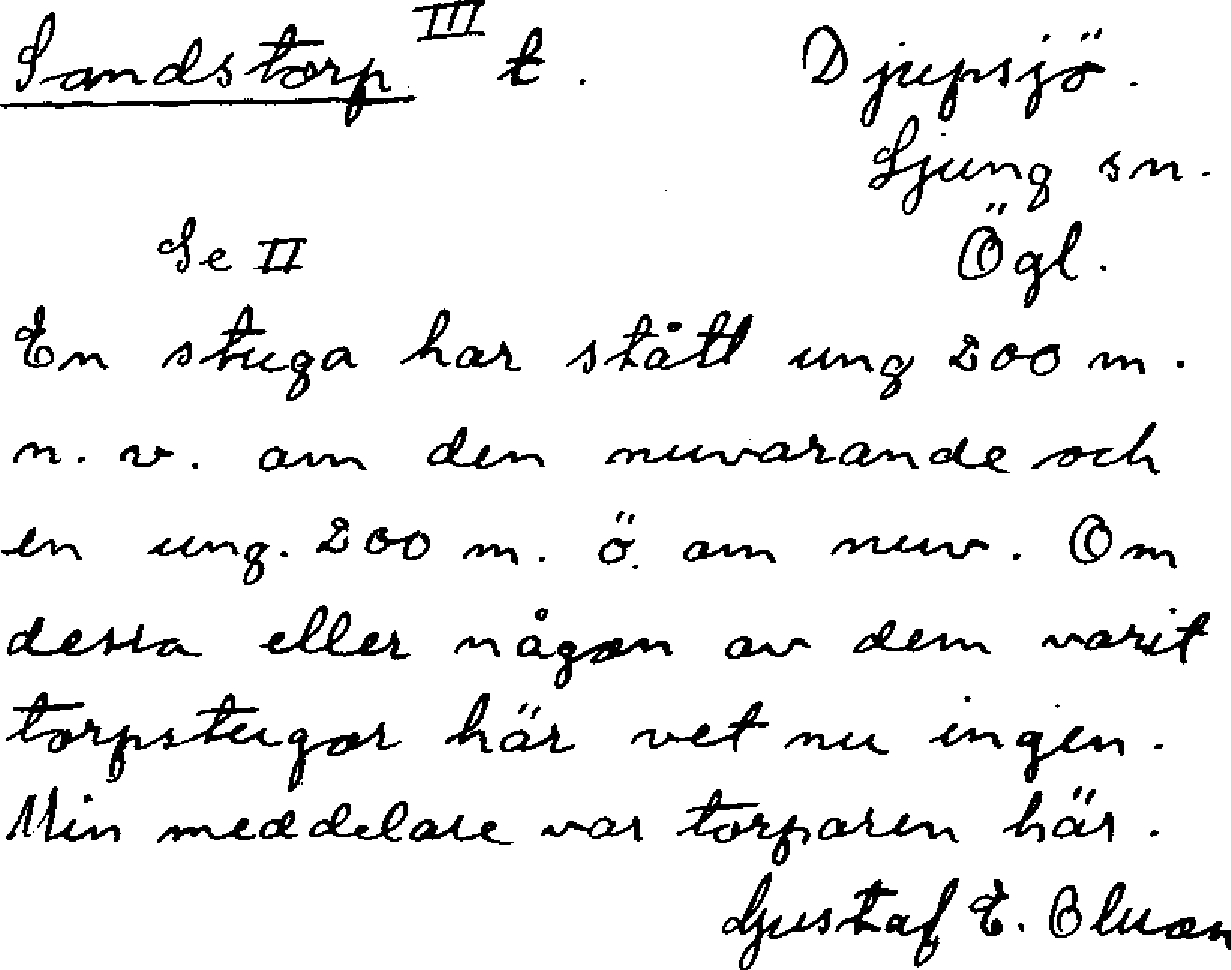 Sandstorp III t. Djupsjö.
Ljung sn.
Se II Ögl.
En stuga har stått ung 200 m.
n. v. om den nuvarande och
en ung. 200 m. ö. om nuv. Om
dessa eller någon av dem varit
torpstugor här vet nu ingen.
Min meddelare var torparen här.
Gustaf E.